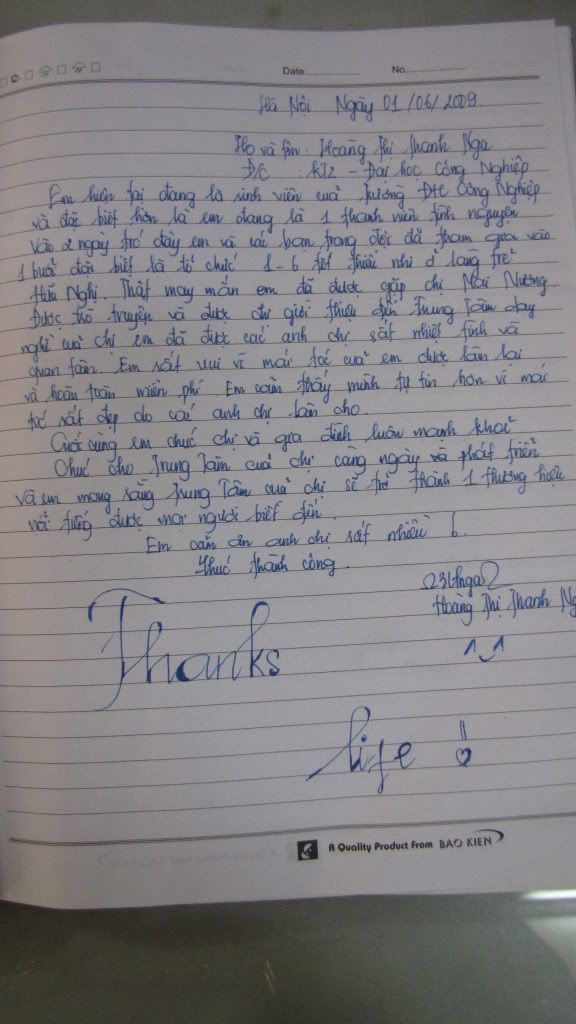 Date.................. No...................
Hà Nội Ngày 01/06/2009
Họ và tên : Hoàng Thị Thanh Nga
Đ/C : KT2 - Đại học Công Nghiệp
Em hiện tại đang là sinh viên của trường ĐHCông Nghiệp
và đặc biệt hơn là em đang là 1 thanh niên tình nguyện
Vào 2 ngày trở đây em và các bạn trong đội đã tham gia vào
1 buổi đặc biệt là tổ chức 1-6 tết thiếu nhi ở làng trẻ
Hữu Nghị. Thật may mắn em đã được gặp chị Mai Nương
Được trò truyện và được chị giới thiệu đến Trung Tâm dạy
nghề của chị em đã được các anh chị rất nhiệt tình và
quan tâm. Em rất vui vì mái tóc của em được làm lại
và hoàn toàn miễn phí. Em cảm thấy mình tự tin hơn vì mái
tóc rất đẹp do các anh chị làm cho.
Cuối cùng em chúc chị và gia đình luôn mạnh khoẻ
Chúc cho Trung Tâm của chị càng ngày và phát triển
và em mong rằng Trung Tâm của chị sẽ trở thành 1 thương hiệu
nổi tiếng được mọi người biết đến.
Em cảm ơn anh chị rất nhiều !.
Chúc thành công.
Hoàng Thị Thanh Ng
Thanks
life !
A Quality Product From BAO KIEN